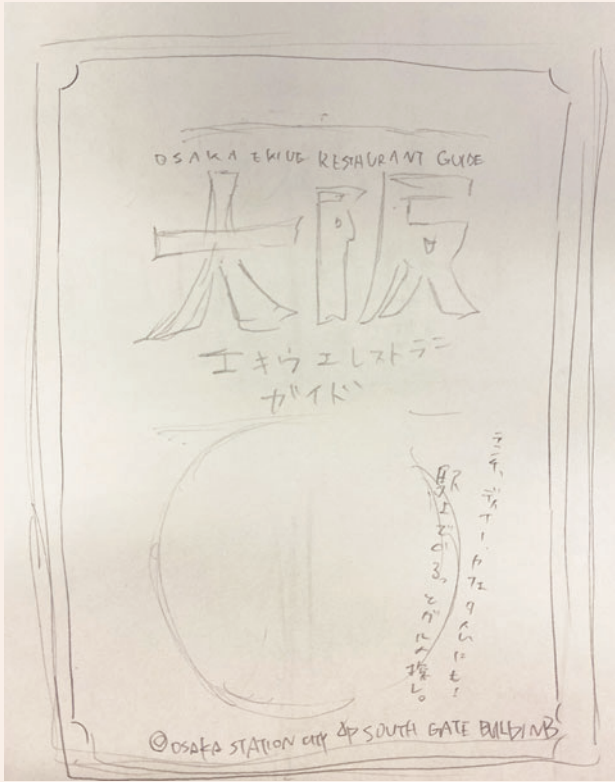 OSAKA EKIUE RESTAURANT GUIDE
大阪
エキウエレストラン
ガイド
ランチ、ディナー、カフェタイムにも!
駅上でぐるっとグルメ探し。
©OSAKA STATION CITY SOUTH GATE BUILDING